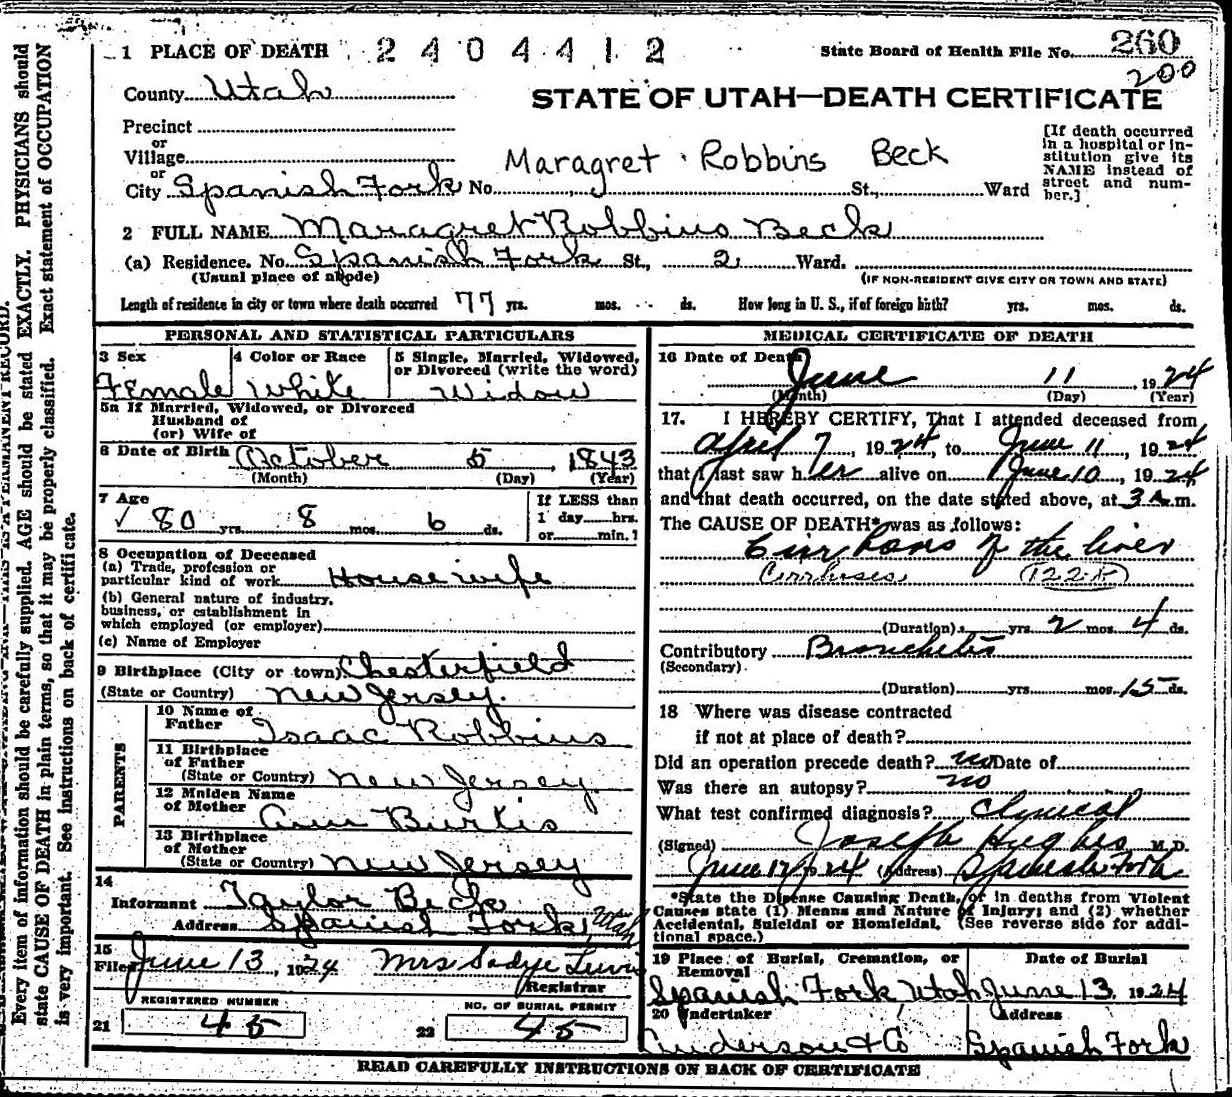 1 PLACE OF DEATH 2404412 State Board of Health File No. 260
200
County Utah
STATE OF UTAH—DEATH CERTIFICATE
Precinct
or
Village
or
City Spanish Fork No. St., Ward
Maragret Robbins Beck
[If death occurred
in a hospital or in-
stitution give its
NAME instead of
street and num-
ber.]
2 FULL NAME Maragret Robbins Beck
(a) Residence. No. Spanish Fork St., 2 Ward.
(Usual place of abode) (IF NON-RESIDENT GIVE CITY OR TOWN AND STATE)
Length of residence in city or town where death occurred 77 yrs. mos. ds. How long in U. S., if of foreign birth? yrs. mos. ds.
PERSONAL AND STATISTICAL PARTICULARS
3 Sex 4 Color or Race 5 Single, Married, Widowed,
or Divorced (write the word)
Female White Widow
5a If Married, Widowed, or Divorced
Husband of
(or) Wife of
6 Date of Birth October 5, 1843
(Month) (Day) (Year)
7 Age If LESS than
80 yrs. 8 mos. 6 ds. 1 day hrs.
or min.?
8 Occupation of Deceased
(a) Trade, profession or
particular kind of work House wife
(b) General nature of industry,
business, or establishment in
which employed (or employer)
(c) Name of Employer
9 Birthplace (City or town) Chesterfield
(State or Country) New Jersey.
PARENTS
10 Name of
Father Isaac Robbins
11 Birthplace
of Father
(State or Country) New Jersey.
12 Maiden Name
of Mother Ann Burtis
13 Birthplace
of Mother
(State or Country) New Jersey
14
Informant Taylor Beck
Address Spanish Fork Utah
15
Filed June 13, 1924 Mrs Sadye Lewis
Registrar
REGISTERED NUMBER NO. OF BURIAL PERMIT
21 45 22 45
MEDICAL CERTIFICATE OF DEATH
16 Date of Death
June 11, 1924
(Month) (Day) (Year)
17. I HEREBY CERTIFY, That I attended deceased from
April 7, 1924, to June 11, 1924
that I last saw her alive on June 10, 1924
and that death occurred, on the date stated above, at 3 A.m.
The CAUSE OF DEATH* was as follows:
Cirrhosis of the liver
Cirrhosis
(Duration) yrs. 2 mos. 4 ds.
Contributory Bronchitis
(Secondary)
(Duration) yrs. mos. 15 ds.
18 Where was disease contracted
if not at place of death?
Did an operation precede death? no Date of
Was there an autopsy? no
What test confirmed diagnosis? Clynical
(Signed) Joseph Hughes M.D.
June 12, 1924 (Address) Spanish Fork
*State the Disease Causing Death, or in deaths from Violent
Causes state (1) Means and Nature of Injury; and (2) whether
Accidental, Suicidal or Homicidal. (See reverse side for addi-
tional space.)
19 Place of Burial, Cremation, or Date of Burial
Removal
Spanish Fork Utah June 13, 1924
20 Undertaker Address
Anderson & Co Spanish Fork
READ CAREFULLY INSTRUCTIONS ON BACK OF CERTIFICATE
Every item of information should be carefully supplied. AGE should be stated EXACTLY. PHYSICIANS should
state CAUSE OF DEATH in plain terms, so that it may be properly classified. Exact statement of OCCUPATION
is very important. See instructions on back of certificate.